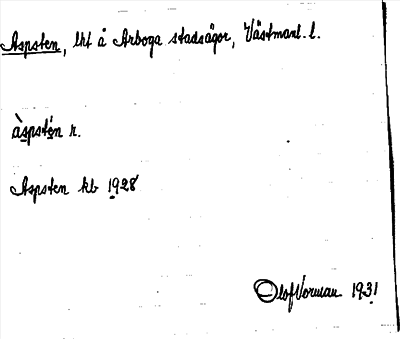 Aspsten, lht å Arboga stadsägor, Västmanl. l.
àspstén n.
Aspsten kb 1928
Olof Vorman 1931